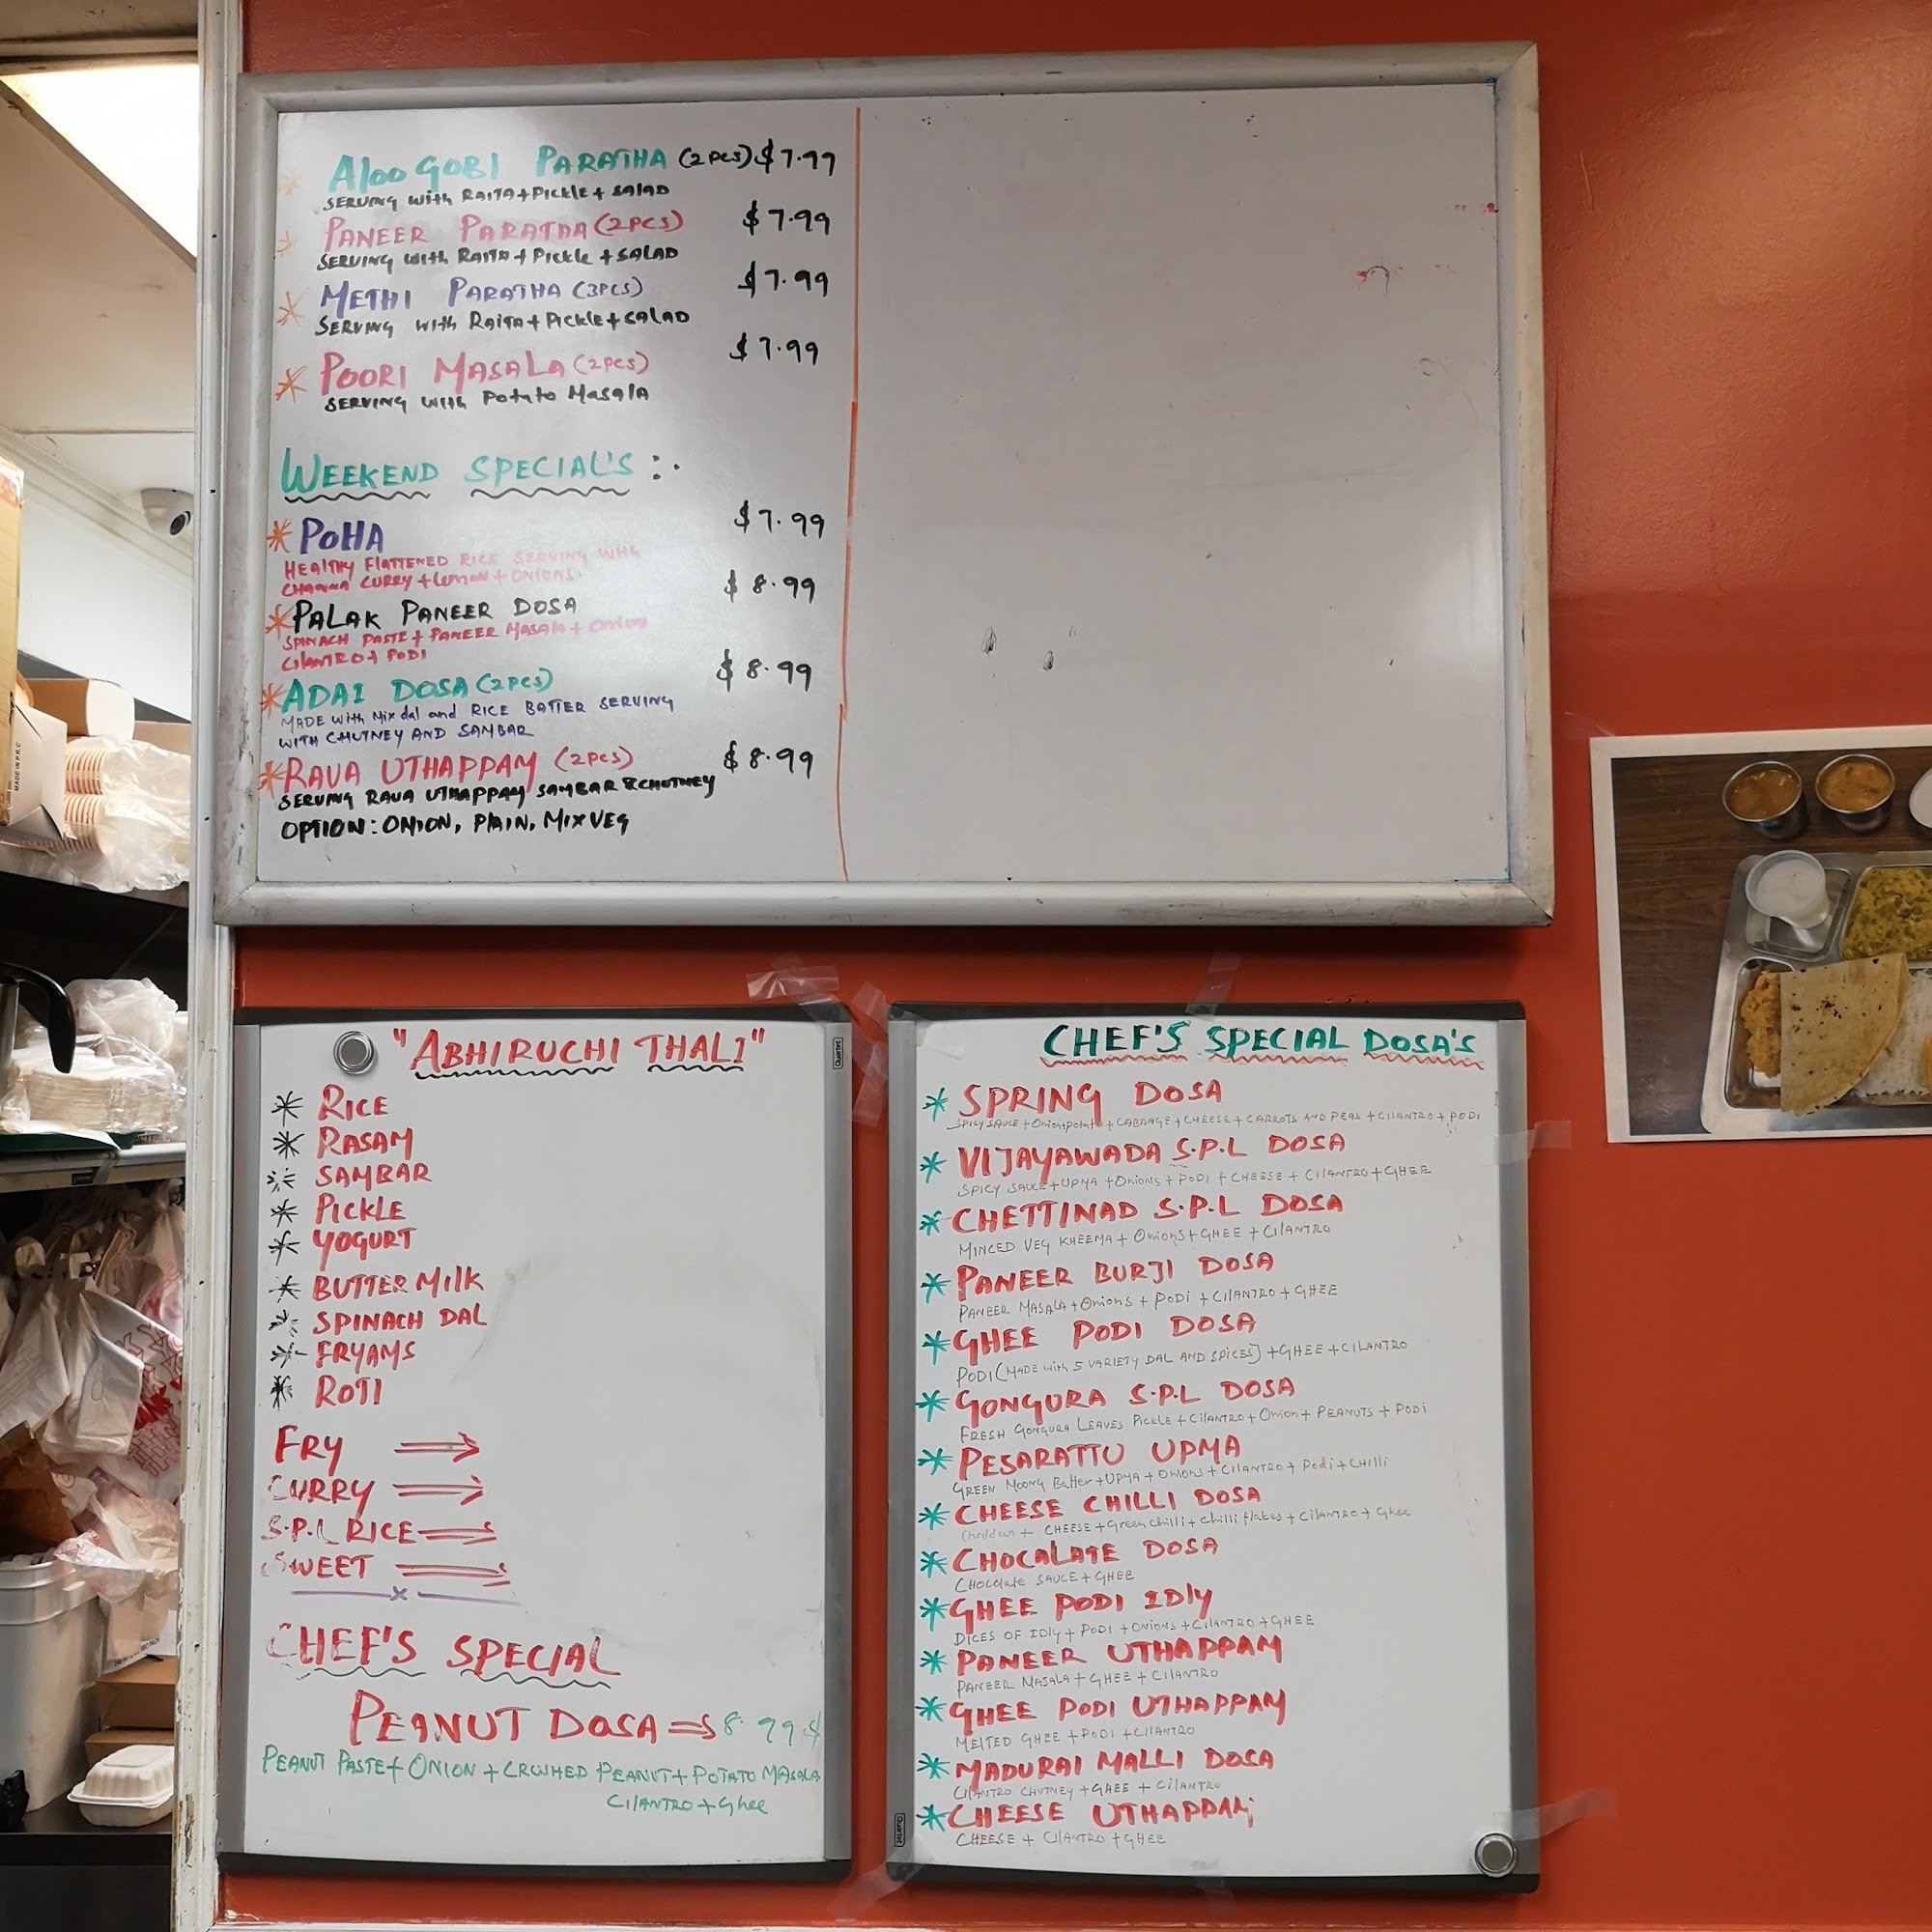 Aloo GOBI PARATHA (2 PCS) $7.99
SERVING with RAITA+Pickle+SALAD
PANEER PARATHA (2PCS) $7.99
SERVING with RAITA+Pickle+SALAD
METHI PARATHA (3PCS) $7.99
SERVING with RAITA+Pickle+SALAD
POORI MASALA (2PCS) $7.99
SERVING with Potato MASALA
WEEKEND SPECIAL'S :.
*POHA $7.99
HEALTHY FLATTENED RICE SERVING WITH
CHANNA CURRY+Lemon+ONIONS.
*PALAK PANEER DOSA $8.99
SPINACH PASTE+PANEER MASALA+ONION
CILANTRO+PODI
*ADAI DOSA (2PCS) $8.99
MADE with Mix dal and RICE BATTER SERVING
WITH CHUTNEY AND SAMBAR
*RAVA UTHAPPAM (2PCS) $8.99
SERVING RAVA UTHAPPAM SAMBAR & CHUTNEY
OPTION: ONION, PLAIN, MIXVEG
"ABHIRUCHI THALI"
* RICE
* RASAM
* SAMBAR
* PICKLE
* YOGURT
* BUTTERMILK
* SPINACH DAL
* FRYAMS
* ROTI
FRY ⇒
CURRY ⇒
S.P.L RICE ⇒
SWEET ⇒
CHEF'S SPECIAL
PEANUT DOSA ⇒ 8.99$
PEANUT PASTE+ONION+CRUSHED PEANUT+POTATO MASALA
CILANTRO+Ghee
Quartet
CHEF'S SPECIAL DOSA'S
* SPRING DOSA
SPICY SAUCE+Onion+potato+CABBAGE+CHEESE+CARROTS AND PEAS+CILANTRO+PODI
* VIJAYAWADA S.P.L DOSA
SPICY SAUCE+UPMA+Onions+PODI+CHEESE+CILANTRO+GHEE
* CHETTINAD S.P.L DOSA
MINCED VEG KHEEMA+Onions+GHEE+CILANTRO
* PANEER BURJI DOSA
PANEER MASALA+Onions+PODI+CILANTRO+GHEE
* GHEE PODI DOSA
PODI(MADE with 5 VARIETY DAL AND SPICES)+GHEE+CILANTRO
* GONGURA S.P.L DOSA
FRESH GONGURA LEAVES PICKLE+CILANTRO+Onion+PEANUTS+PODI
* PESARATTU UPMA
GREEN MOONG Batter+UPMA+Onions+CILANTRO+Podi+CHILLI
* CHEESE CHILLI DOSA
Cheddar+CHEESE+Green Chilli+Chilli flakes+Cilantro+Ghee
* CHOCALATE DOSA
CHOCOlate SAUCE+GHEE
* GHEE PODI IDLY
DICES OF IDLY+PODI+ONIONS+CILANTRO+GHEE
* PANEER UTHAPPAM
PANEER MASALA+GHEE+CILANTRO
* GHEE PODI UTHAPPAM
MELTED GHEE+PODI+CILANTRO
* MADURAI MALLI DOSA
CILANTRO CHUTNEY+GHEE+CILANTRO
* CHEESE UTHAPPAM
CHEESE+CILANTRO+GHEE
Quartet
MADE IN P.R.C